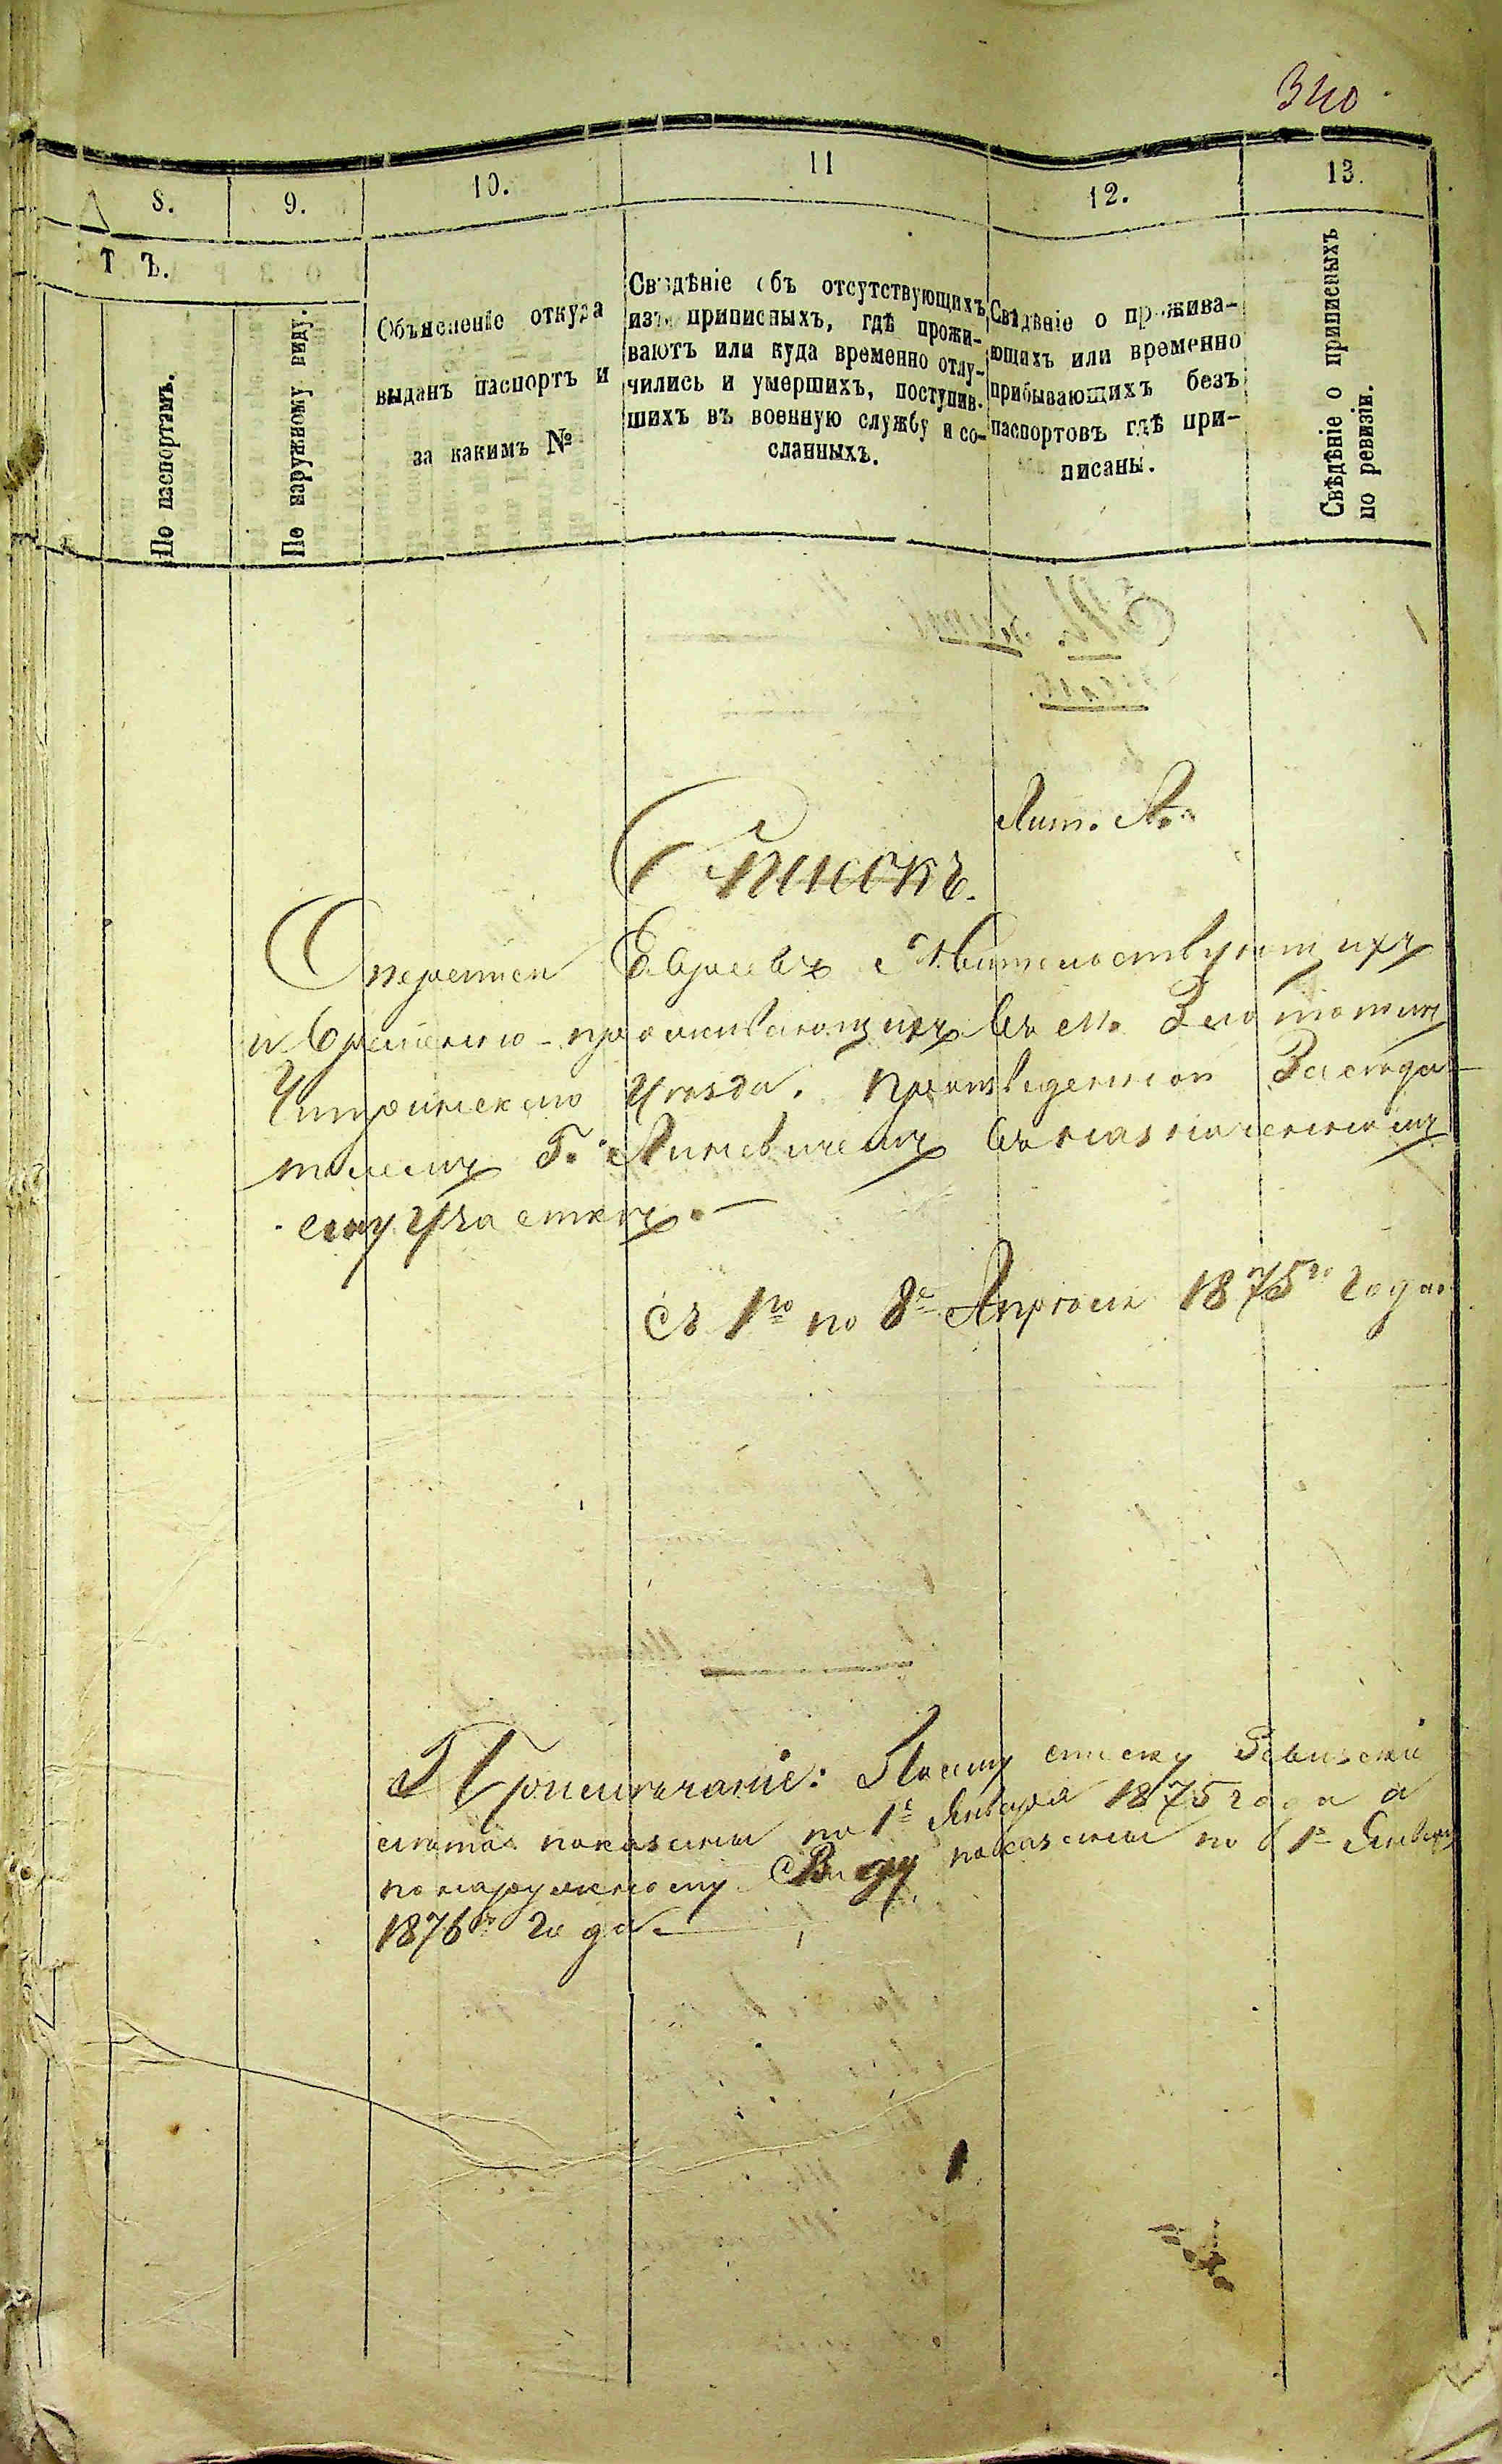 340
8.
9.
10.
11
12.
13.
Т Ъ.
По паспортамъ.
По наружному виду.
Объясненіе откуда
выданъ паспортъ и
за какимъ №
Свѣдѣніе объ отсутствующихъ
изъ приписныхъ, гдѣ прожи-
ваютъ или куда временно отлу-
чились и умершихъ, поступив-
шихъ въ военную службу и со-
сланныхъ.
Свѣдѣніе о прожива-
ющихъ или временно
прибывающихъ безъ
паспортовъ гдѣ при-
писаны.
Свѣдѣніе о приписныхъ
по ревизіи.
Лит. А.
Списокъ.
О переписи Евреевъ Жительствующихъ
и временно-проживающихъ въ м.
Уѣзда. Произведенной Заседа-
телемъ Г. Линевичемъ въ назначенномъ
ему Участкѣ.
Съ 1го по 8е Апрѣля 1875го года
Примѣчаніе: По сему списку Ревизскіе
лѣта показаны по 1е Января 1875 года а
по наружному Виду показаны по 1е Января
1876го года